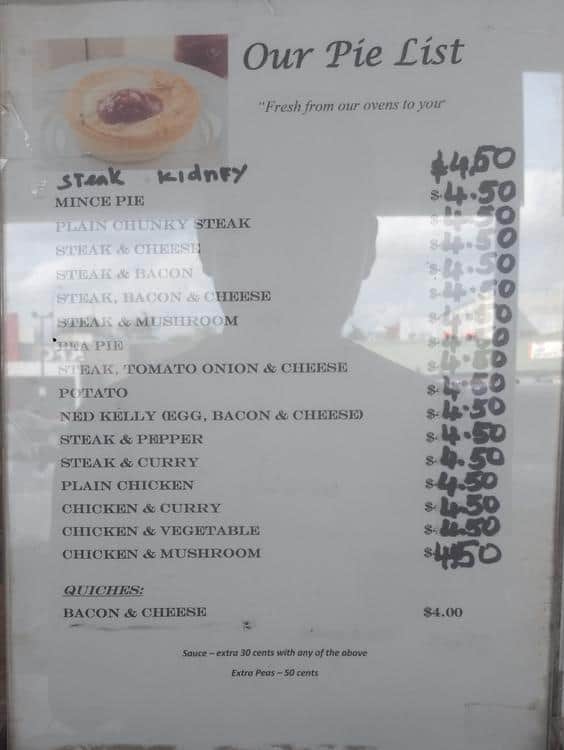 Our Pie List
"Fresh from our ovens to you"
STEAK KIDNEY $4.50
MINCE PIE $4.50
PLAIN CHUNKY STEAK $4.50
STEAK & CHEESE $4.50
STEAK & BACON $4.50
STEAK, BACON & CHEESE $4.50
STEAK & MUSHROOM $4.50
PEA PIE
STEAK, TOMATO ONION & CHEESE
POTATO
NED KELLY (EGG, BACON & CHEESE) $4.50
STEAK & PEPPER $4.50
STEAK & CURRY $4.50
PLAIN CHICKEN $4.50
CHICKEN & CURRY $4.50
CHICKEN & VEGETABLE $4.50
CHICKEN & MUSHROOM $4.50
QUICHES:
BACON & CHEESE $4.00
Sauce – extra 30 cents with any of the above
Extra Peas – 50 cents